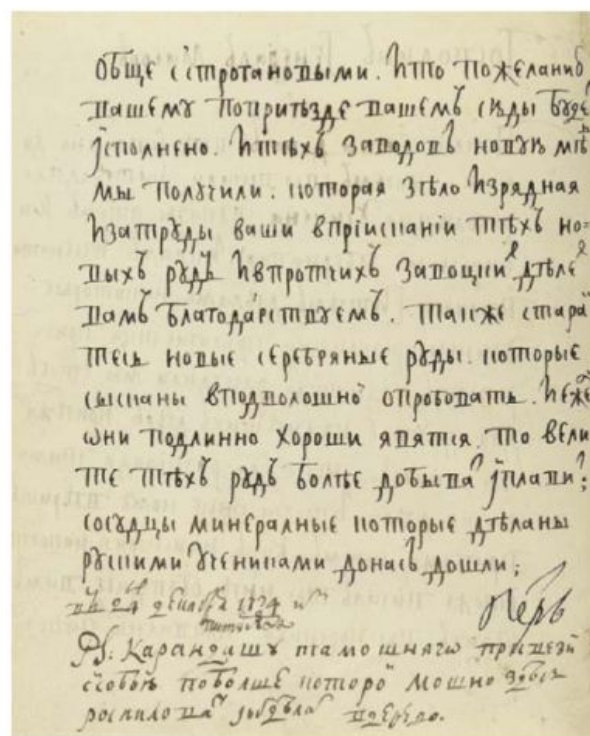 Обще с строгановыми. И то по желанию
вашему по приѣзде вашемъ сюды буде
јсполнено. И тѣхъ заводовъ новую мѣ
мы получили. которая зѣло Изрядная
И за труды ваши в прiисканiи тѣхъ но=
выхъ рудъ И в протчихъ заводцки дѣле
вамъ благодарствуемъ. также стара
тесь новые серебряные руды. которые
сысканы в подволошно опробовать. И еже
ѡни подлинно хороши явятся. то вели
те тѣхъ рудъ болѣе добыва јплави;
сосудцы минералные которые дѣланы
рускими учениками до насъ дошли;
24 декабр 1724
Петръ
PS. Карандашу тамошнягѡ привези
с собою поболше которо мошно здесь
роспилова в дерево.